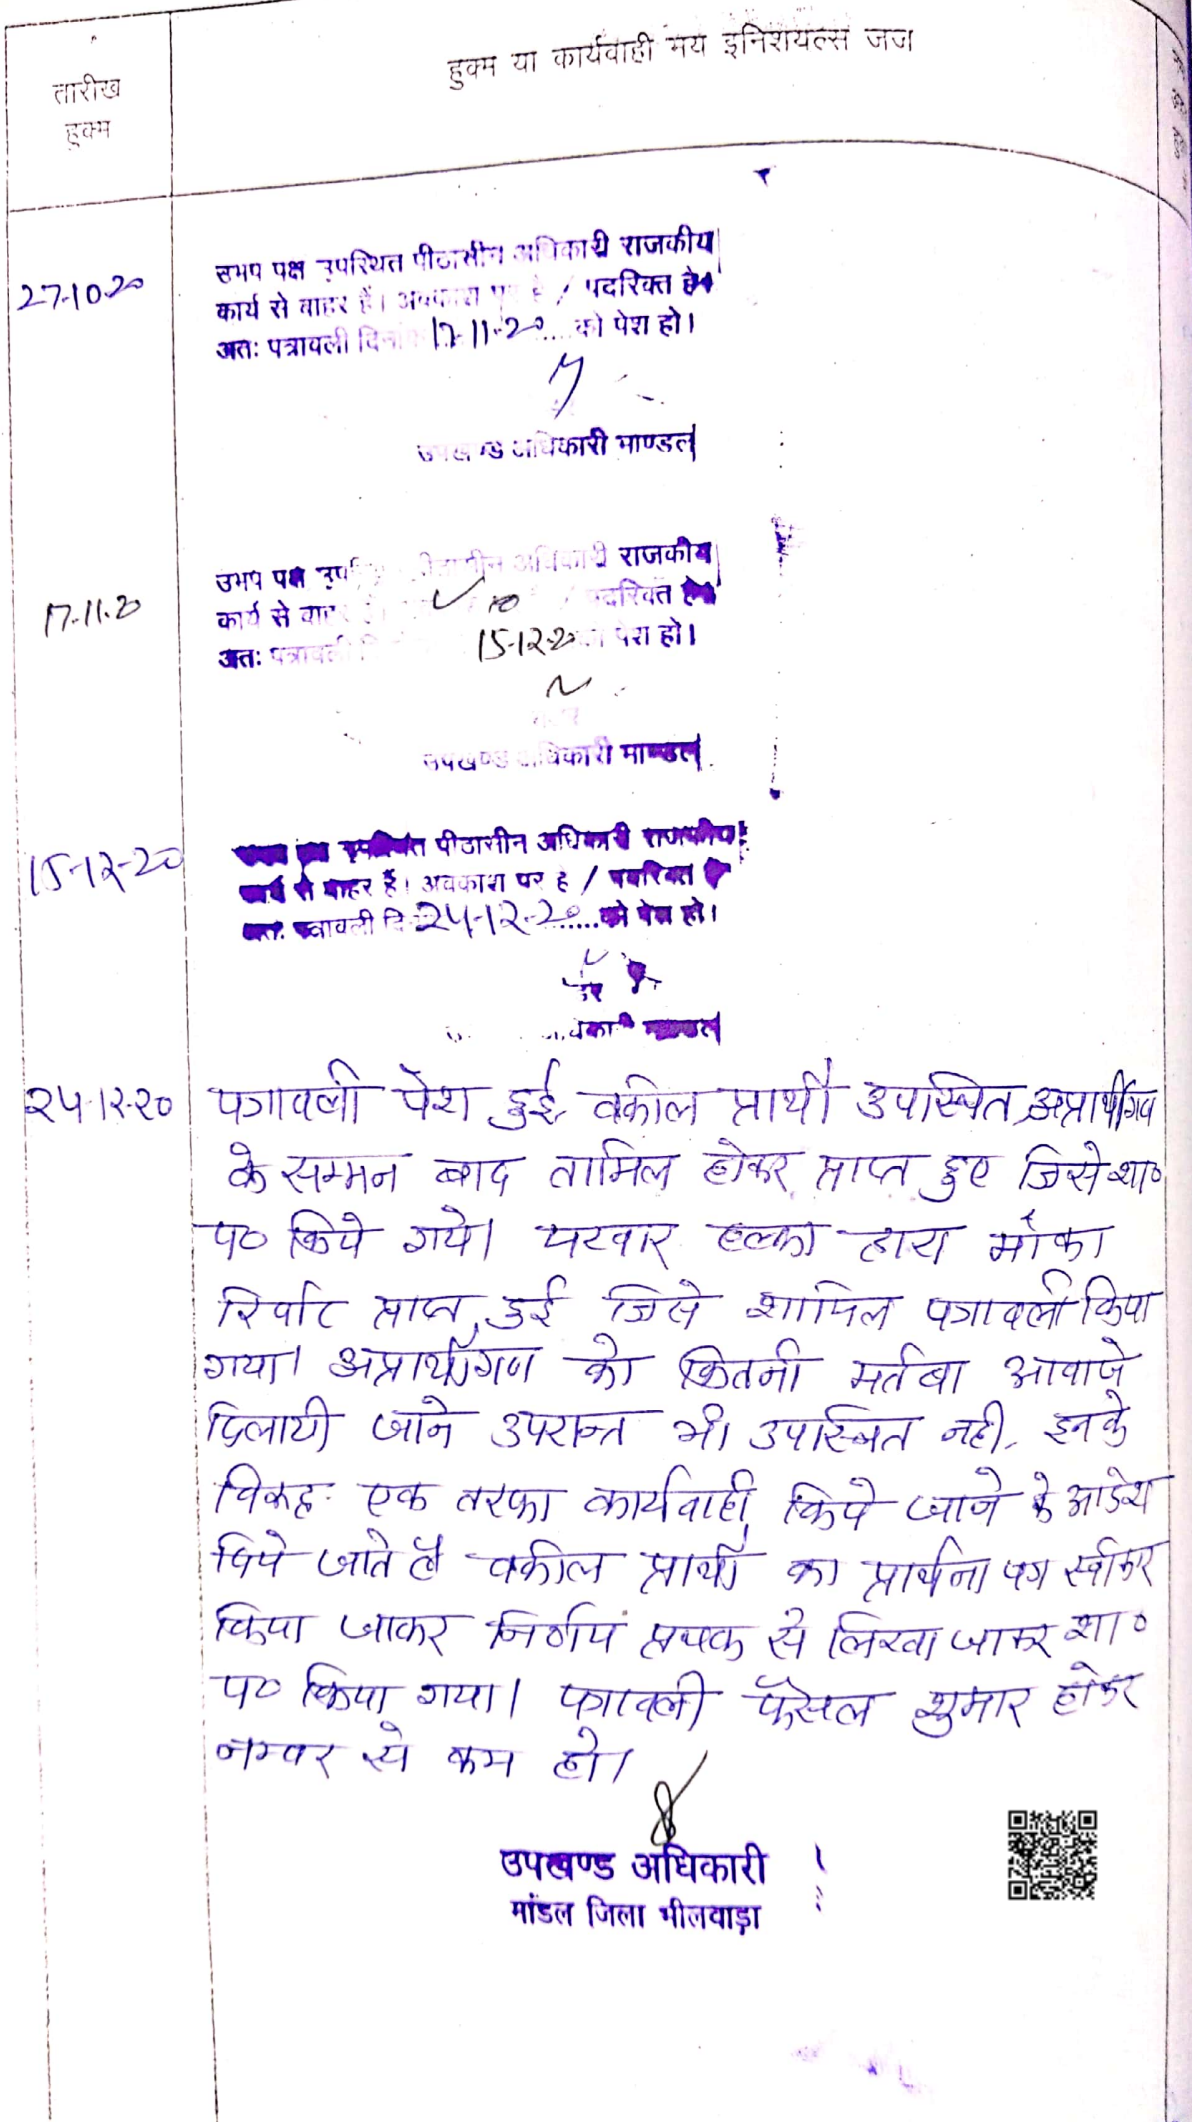 हुक्म या कार्यवाही मय इनिशियल्स जज
तारीख
हुक्म
27-10-20
उभय पक्ष उपस्थित पीठासीन अधिकारी राजकीय
कार्य से बाहर हैं। अवकाश पर है / पदरिक्त है।
अतः पत्रावली दिनांक 17-11-20 को पेश हो।
उपखण्ड अधिकारी माण्डल
17.11.20
उभय पक्ष पीठासीन अधिकारी राजकीय
कार्य से बाहर पदरिक्त है।
अतः पत्रावली 15-12-20 पेश हो।
उपखण्ड अधिकारी माण्डल
15-12-20
पीठासीन अधिकारी राजकीय
कार्य से बाहर हैं। अवकाश पर है / पदरिक्त है
अतः पत्रावली दि 24-12-20 को पेश हो।
माण्डल
24-12-20
पत्रावली पेश हुई, वकील प्रार्थी उपस्थित, अप्रार्थीगण
के सम्मन बाद तामिल होकर प्राप्त हुए जिसे शा०
प० किये गये। पटवार हल्का द्वारा मौका
रिर्पोट प्राप्त हुई जिसे शामिल पत्रावली किया
गया। अप्रार्थीगण को कितनी मर्तबा आवाजे
दिलायी जाने उपरान्त भी उपस्थित नही, इनके
विरूद्ध एक तरफा कार्यवाही किये जाने के आदेश
दिये जाते है वकील प्रार्थी का प्रार्थना पत्र स्वीकार
किया जाकर निर्णय प्रथक से लिखा जाकर शा०
प० किया गया। पत्रावली फैसल शुमार होकर
नम्बर से कम हो।
उपखण्ड अधिकारी
मांडल जिला भीलवाड़ा